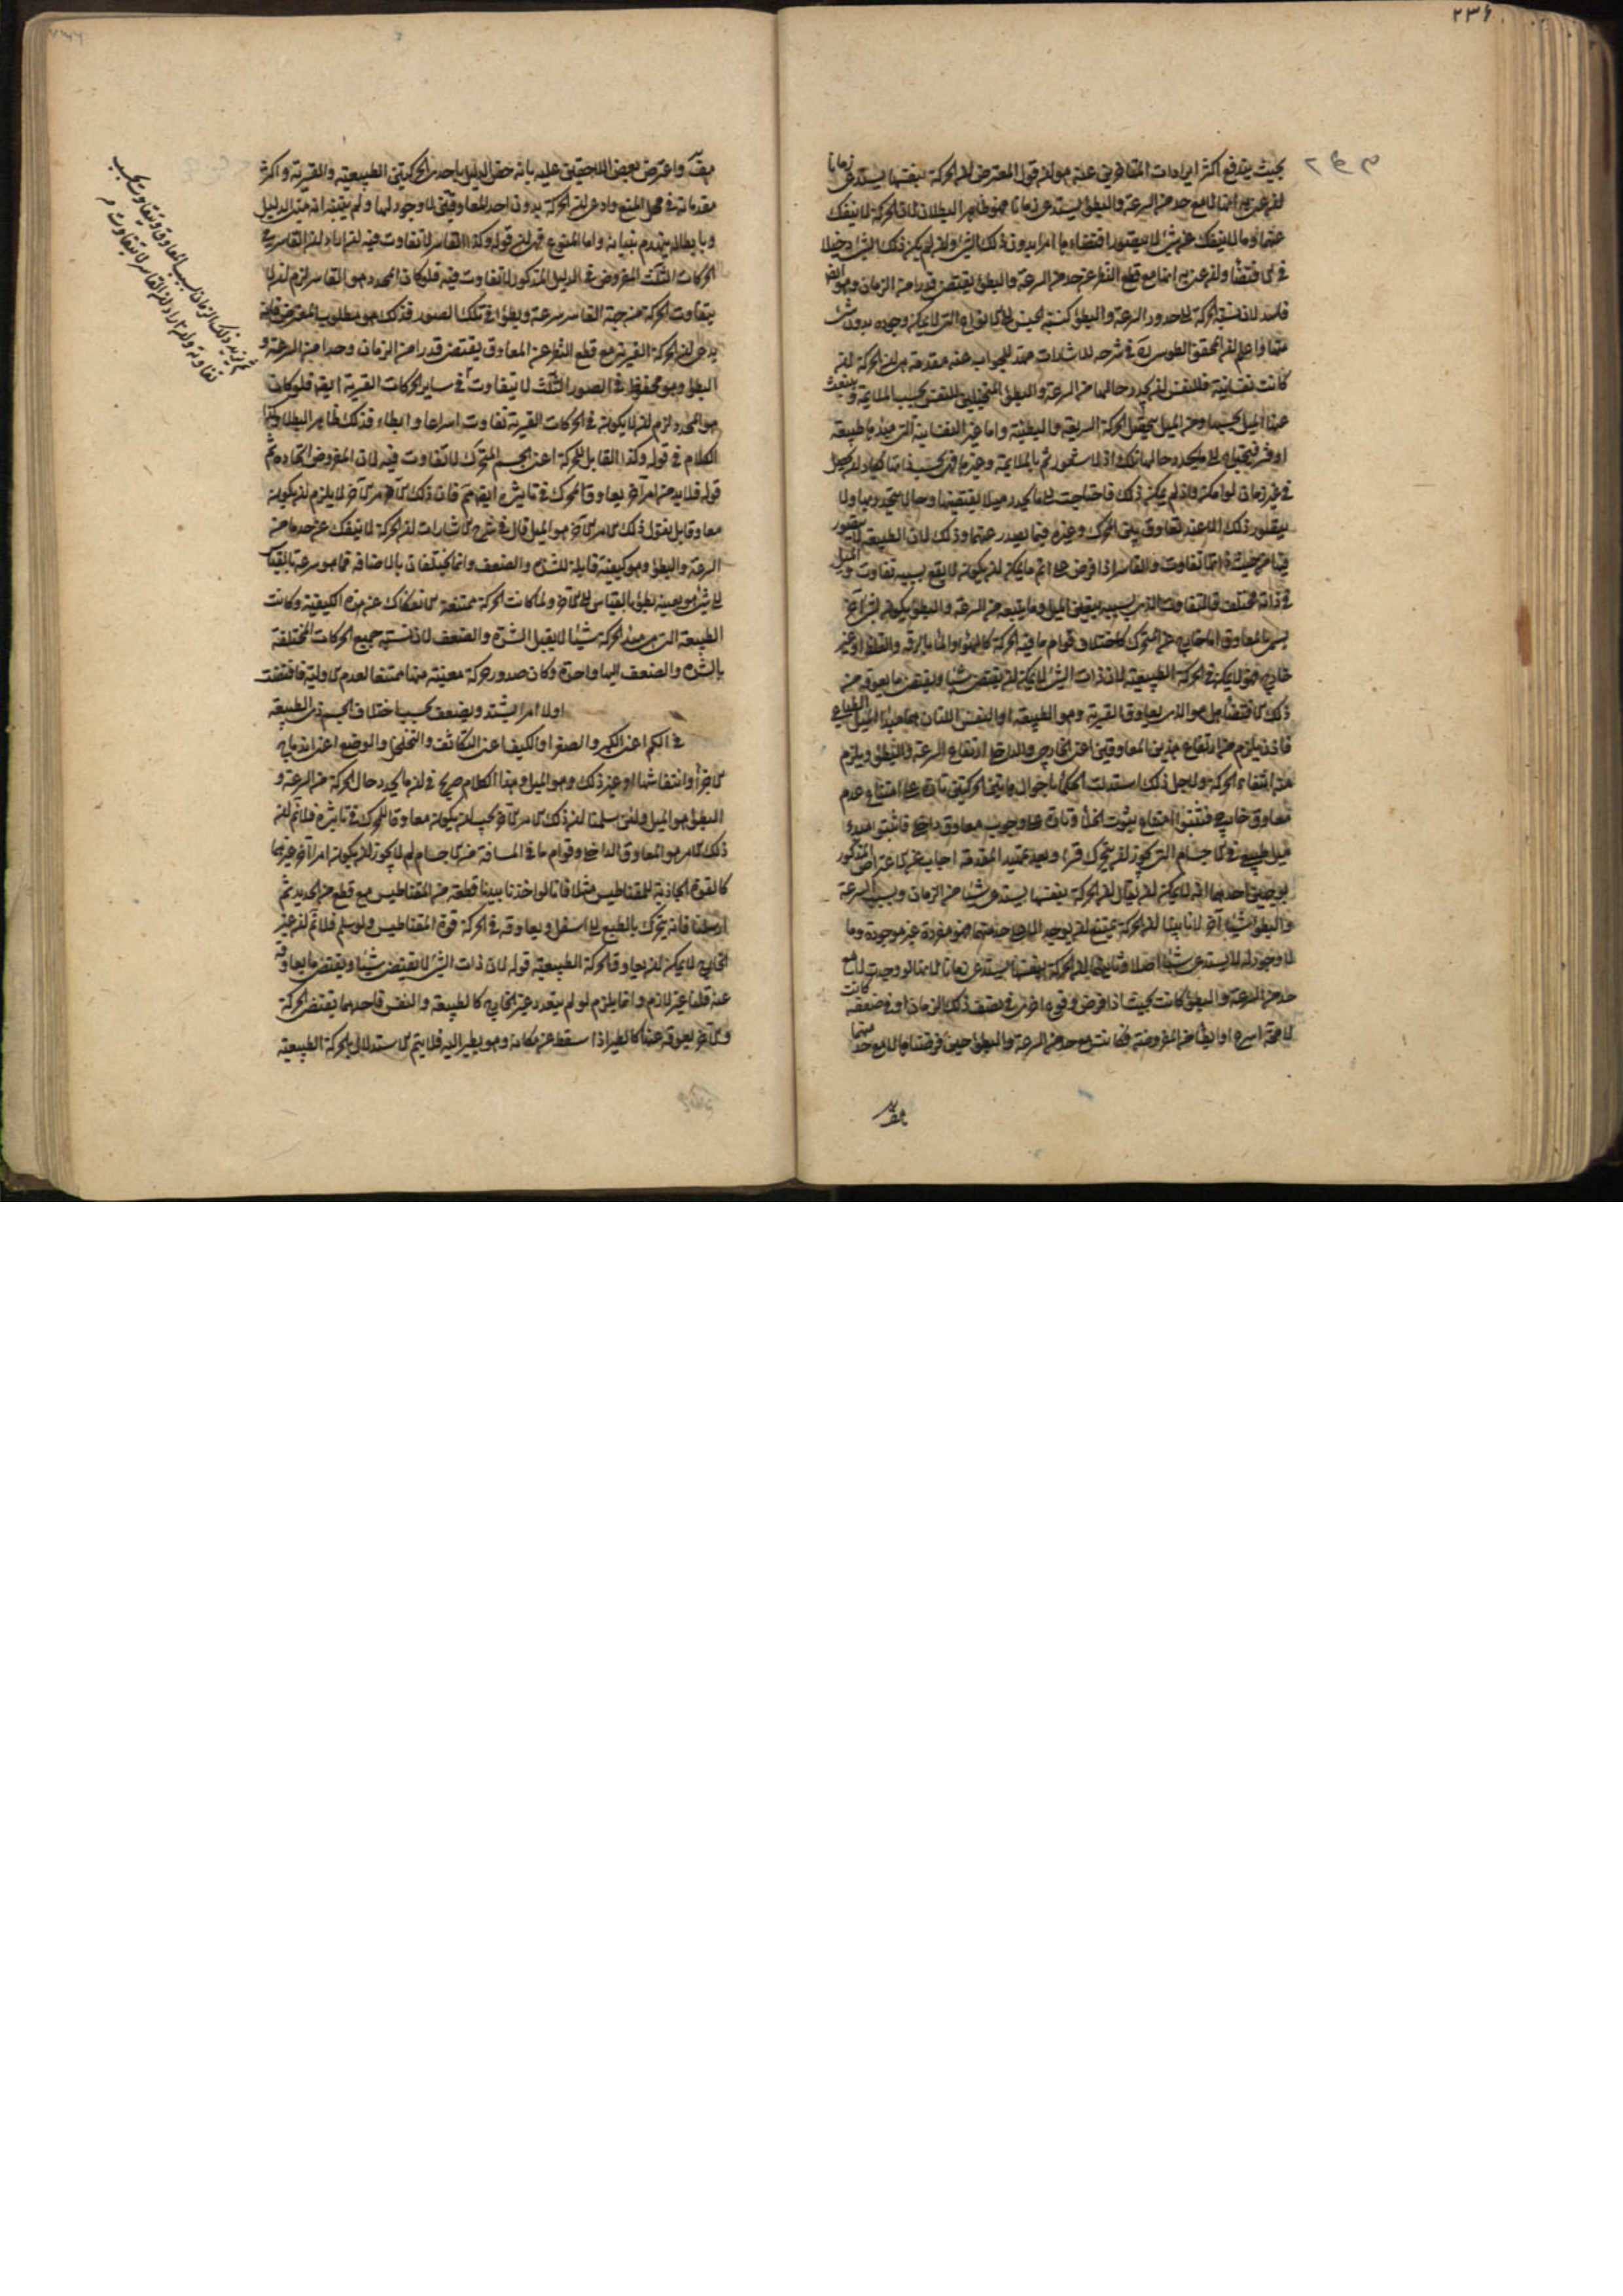 ٢٣۶
بحيث يندفع اكثر ايرادات المتأخرين عنه هو ان قول المعترض ان الحركة بنفسها يستدعى زمانا
ان عنى به انها لا مع حد من السرعة والبطؤ يستدعى زمانا فهو ظاهر البطلان لان الحركة لا ينفك
عنهما وما لا ينفك عن شئ لا يتصور اقتضاؤه امرا بدون ذلك الشئ وان لم يكن ذلك الشئ دخيلا
فى الاقتضاء وان عنى به انها مع قطع النظر عن حد من السرعة والبطؤ يقتضى قدرا من الزمان وهو ايضا
فاسد لان نسبة الحركة الى حدود السرعة والبطؤ كنسبة الجنس الى الانواع التى لا يمكن وجوده بدون شئ
منها واعلم ان المحقق الطوسى فى شرحه للاشارات مهد للجواب عنه مقدمة هى ان الحركة ان
كانت نفسانية فللنفس ان يحدد حالها من السرعة والبطؤ المتخيلين للنفس بحسب الملايمة وينبعث
عنها الميل بحسبها ومن الميل يتحصل الحركة السريعة والبطيئة واما غير النفسانية التى مبدؤها طبيعة
او قسر فيحتاج الى ما يحدد حالها تلك اذ لا شعور ثم بالملايمة وغيرها فهى بحسب ذاتها تكاد ان يحصل
فى غير زمان لو امكن واذ لم يمكن ذلك فاحتاجت الى ما يحدد ميلا يقتضيها وحالا يتحدد بها ولا
يتصور ذلك الا عند تعاوق بين المحرك وغيره فيما يصدر عنهما وذلك لان الطبيعة لا يتصور
فيها من حيث ذاتها تفاوت والقاسر اذا فرض على اتم ما يمكن ان يكون لا يقع بسببه تفاوت والميل
فى ذاته مختلف فالتفاوت الذى بسببه يتعين الميل وما يتبعه من السرعة والبطؤ يكون لشئ آخر
يسمى المعاوق اما خارج عن المتحرك كاختلاف قوام ما فيه الحركة كالهواء والماء بالرقة والغلظ او غير
خارج وهو لا يمكن فى الحركة الطبيعية لان ذات الشئ لا يمكن ان يقتضى شيئا ويقتضى ما يعوقه عن
ذلك الاقتضاء بل هو الذى يعاوق القسرية وهو الطبيعة او النفس اللتان هما مبدأ الميل الطباعى
فاذن يلزم من ارتفاع هذين المعاوقين اعنى الخارجى والداخلى ارتفاع السرعة والبطؤ ويلزم
منه انتفاء الحركة ولاجل ذلك استدلت الحكماء باحوال هاتين الحركتين تارة على امتناع عدم
معاوق خارجى فبينوا امتناع ثبوت الخلأ وتارة على وجوب معاوق داخلى فاثبتوا مبدء
ميل طبيعى فى الاجسام التى يجوز ان يتحرك قسرا وبعد تمهيد المقدمة اجاب عن الاعتراض المذكور
بوجهين احدهما انه لا يمكن ان يقال ان الحركة بنفسها يستدعى شيئا من الزمان وبسبب السرعة
والبطؤ شيئا آخر لانا بينا ان الحركة يمتنع ان يوجد الا على حد منهما فهو مفردة غير موجودة وما
لا وجود له لا يستدعى شيئا اصلا وثانيهما ان الحركة بنفسها لا يستدعى زمانا لانها لو وجدت لا مع
حد من السرعة والبطؤ كانت بحيث اذا فرض وقوع اخرى فى نصف ذلك الزمان او فى ضعفه كانت
لا محة اسرع او ابطأ من المفروضة فكانت مع حد من السرعة والبطؤ حين فرضناها لا مع حد منهما
هف
هف واعترض بعض اللاحقين عليه بانه خص الدليل باحدى الحركتين الطبيعية والقسرية واكثر
مقدماته فى محل المنع وادعى ان الحركة بدون احد المعاوقين لا وجود لها ولم يتفطن انه مبنى الدليل
وبابطاله ينهدم بنيانه واما المنوع فهى ان قوله وكذا القاسر لا تفاوت فيه ان اراد ان القاسر فى
الحركات الثلث المفروض فى الدليل المذكور لا تفاوت فيه فلو كان المحدد هو القاسر لزم ان لا
يتفاوت الحركة من جهة القاسر سرعة وبطؤا فى تلك الصور فذلك هو مطلوب المعترض فانه
يدعى ان الحركة القسرية مع قطع النظر عن المعاوق يقتضى قدرا من الزمان وحدا من السرعة و
البطؤ وهو محفوظ فى الصور الثلث لا يتفاوت فى ساير الحركات القسرية ايضا فلو كان
هو المحدد لزم ان لا يكون فى الحركات القسرية تفاوت اسراعا وابطاء فذلك ظاهر البطلان وكذا
الكلام فى قوله وكذا القابل للحركة اعنى الجسم المتحرك لا تفاوت فيه لان المفروض اتحاده ثم
قوله فلا بد من امر آخر يعاوق المحرك فى تاثيره ايضا مم فان ذلك الامر الآخر لا يلزم ان يكون
معاوقا بل نقول ذلك الامر الآخر هو الميل قال فى شرح الاشارات ان الحركة لا تنفك عن حد ما من
السرعة والبطؤ وهو كيفية قابلة للشدة والضعف وانما يختلفان بالاضافة فما هو سرعة بالقياس
الى شئ هو بعينه بطؤ بالقياس الى الآخر ولما كانت الحركة ممتنعة الانفكاك عن هذه الكيفية وكانت
الطبيعة التى هى مبدأ الحركة شيئا لا يقبل الشدة والضعف كان نسبة جميع الحركات المختلفة
بالشدة والضعف اليها واحدة وكان صدور حركة معينة منها ممتنعا لعدم الاولوية فاقتضت
اولا امرا يشتد ويضعف بحسب اختلاف الجسم ذى الطبيعة
فى الكم اعنى الكبر والصغر او الكيف اعنى التكاثف والتخلخل او الوضع اعنى اندماج
الاجزأ وانتفاشها او غير ذلك وهو الميل وهذا الكلام صريح فى ان ما يحدد حال الحركة من السرعة و
البطؤ هو الميل ولئن سلمنا ان ذلك الامر الآخر يجب ان يكون معاوقا للمحرك فى تاثيره فلا نم ان
ذلك الامر هو المعاوق الداخلى وقوام ما فى المسافة من الاجسام لم لا يجوز ان يكون امرا آخر غيرهما
كالقوة الجاذبة للمقناطيس مثلا فانا لو اخذنا بيدنا قطعة من المقناطيس مع قطع من الحديد ثم
ارسلنا فانه يتحرك بالطبع الى اسفل ويعاوقه فى الحركة قوة المقناطيس ولو سلم فلا نم ان غير
الخارج لا يمكن ان يعاوق الحركة الطبيعية قوله لان ذات الشئ لا يقتضى شيئا ويقتضى ما يعاوقه
عنه قلنا غير لازم وانما يلزم لو لم يتعدد غير الخارج كالطبيعة والنفس فاحدهما يقتضى الحركة
والآخر يعوقه عنها كالطير اذا سقط عن مكانه وهو يطير اليه فلا يتم الاستدلال بالحركة الطبيعية
ثم يزيد ذلك الزمان بسبب المعاوق ويتفاوت بحسب
تفاوته وان اراد ان القاسر لا يتفاوت